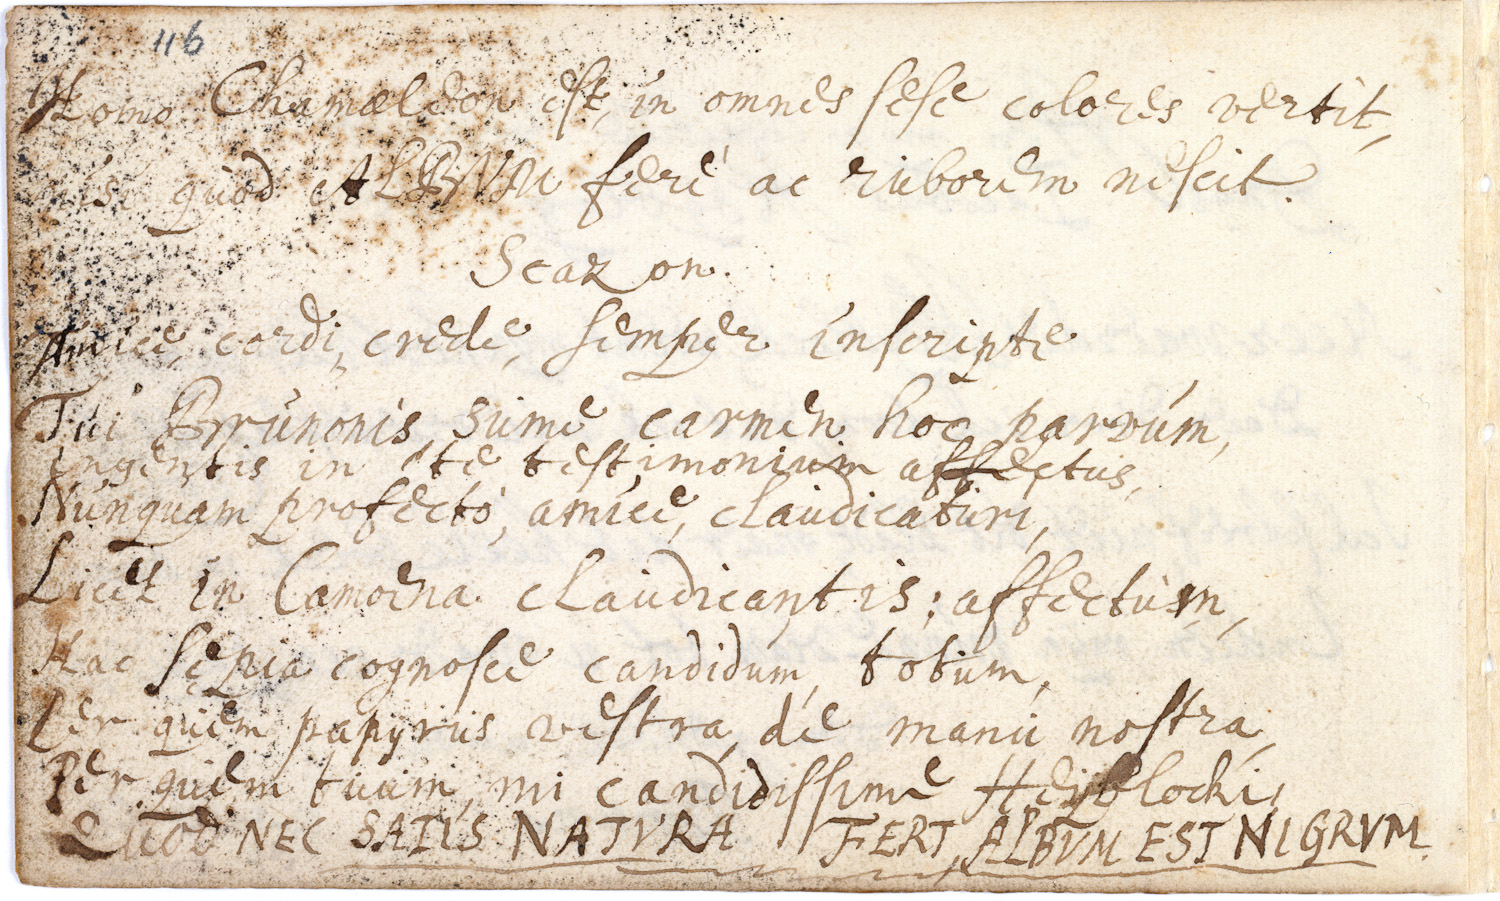 116
Homo Chamæleon est, in omnes sese colores vertit,
nisi quod ALBVM ferè ac ruborem nescit.
Scazon.
Amice cordi, crede, semper inscripte
Tui Brunonis sume carmen hoc parvum,
ingentis in te testimonium affectus,
Nunquam profectò, amice, claudicaturi,
Licet in Camoena claudicantis; affectum,
Hac sepia cognosce candidum, totum,
Per quem papyrus vestra, de manu nostra,
Per quem tuum, mi candidissime Heyblocki,
Quod NEC SATIS NATVRA FERT, ALBVM EST NIGRVM.